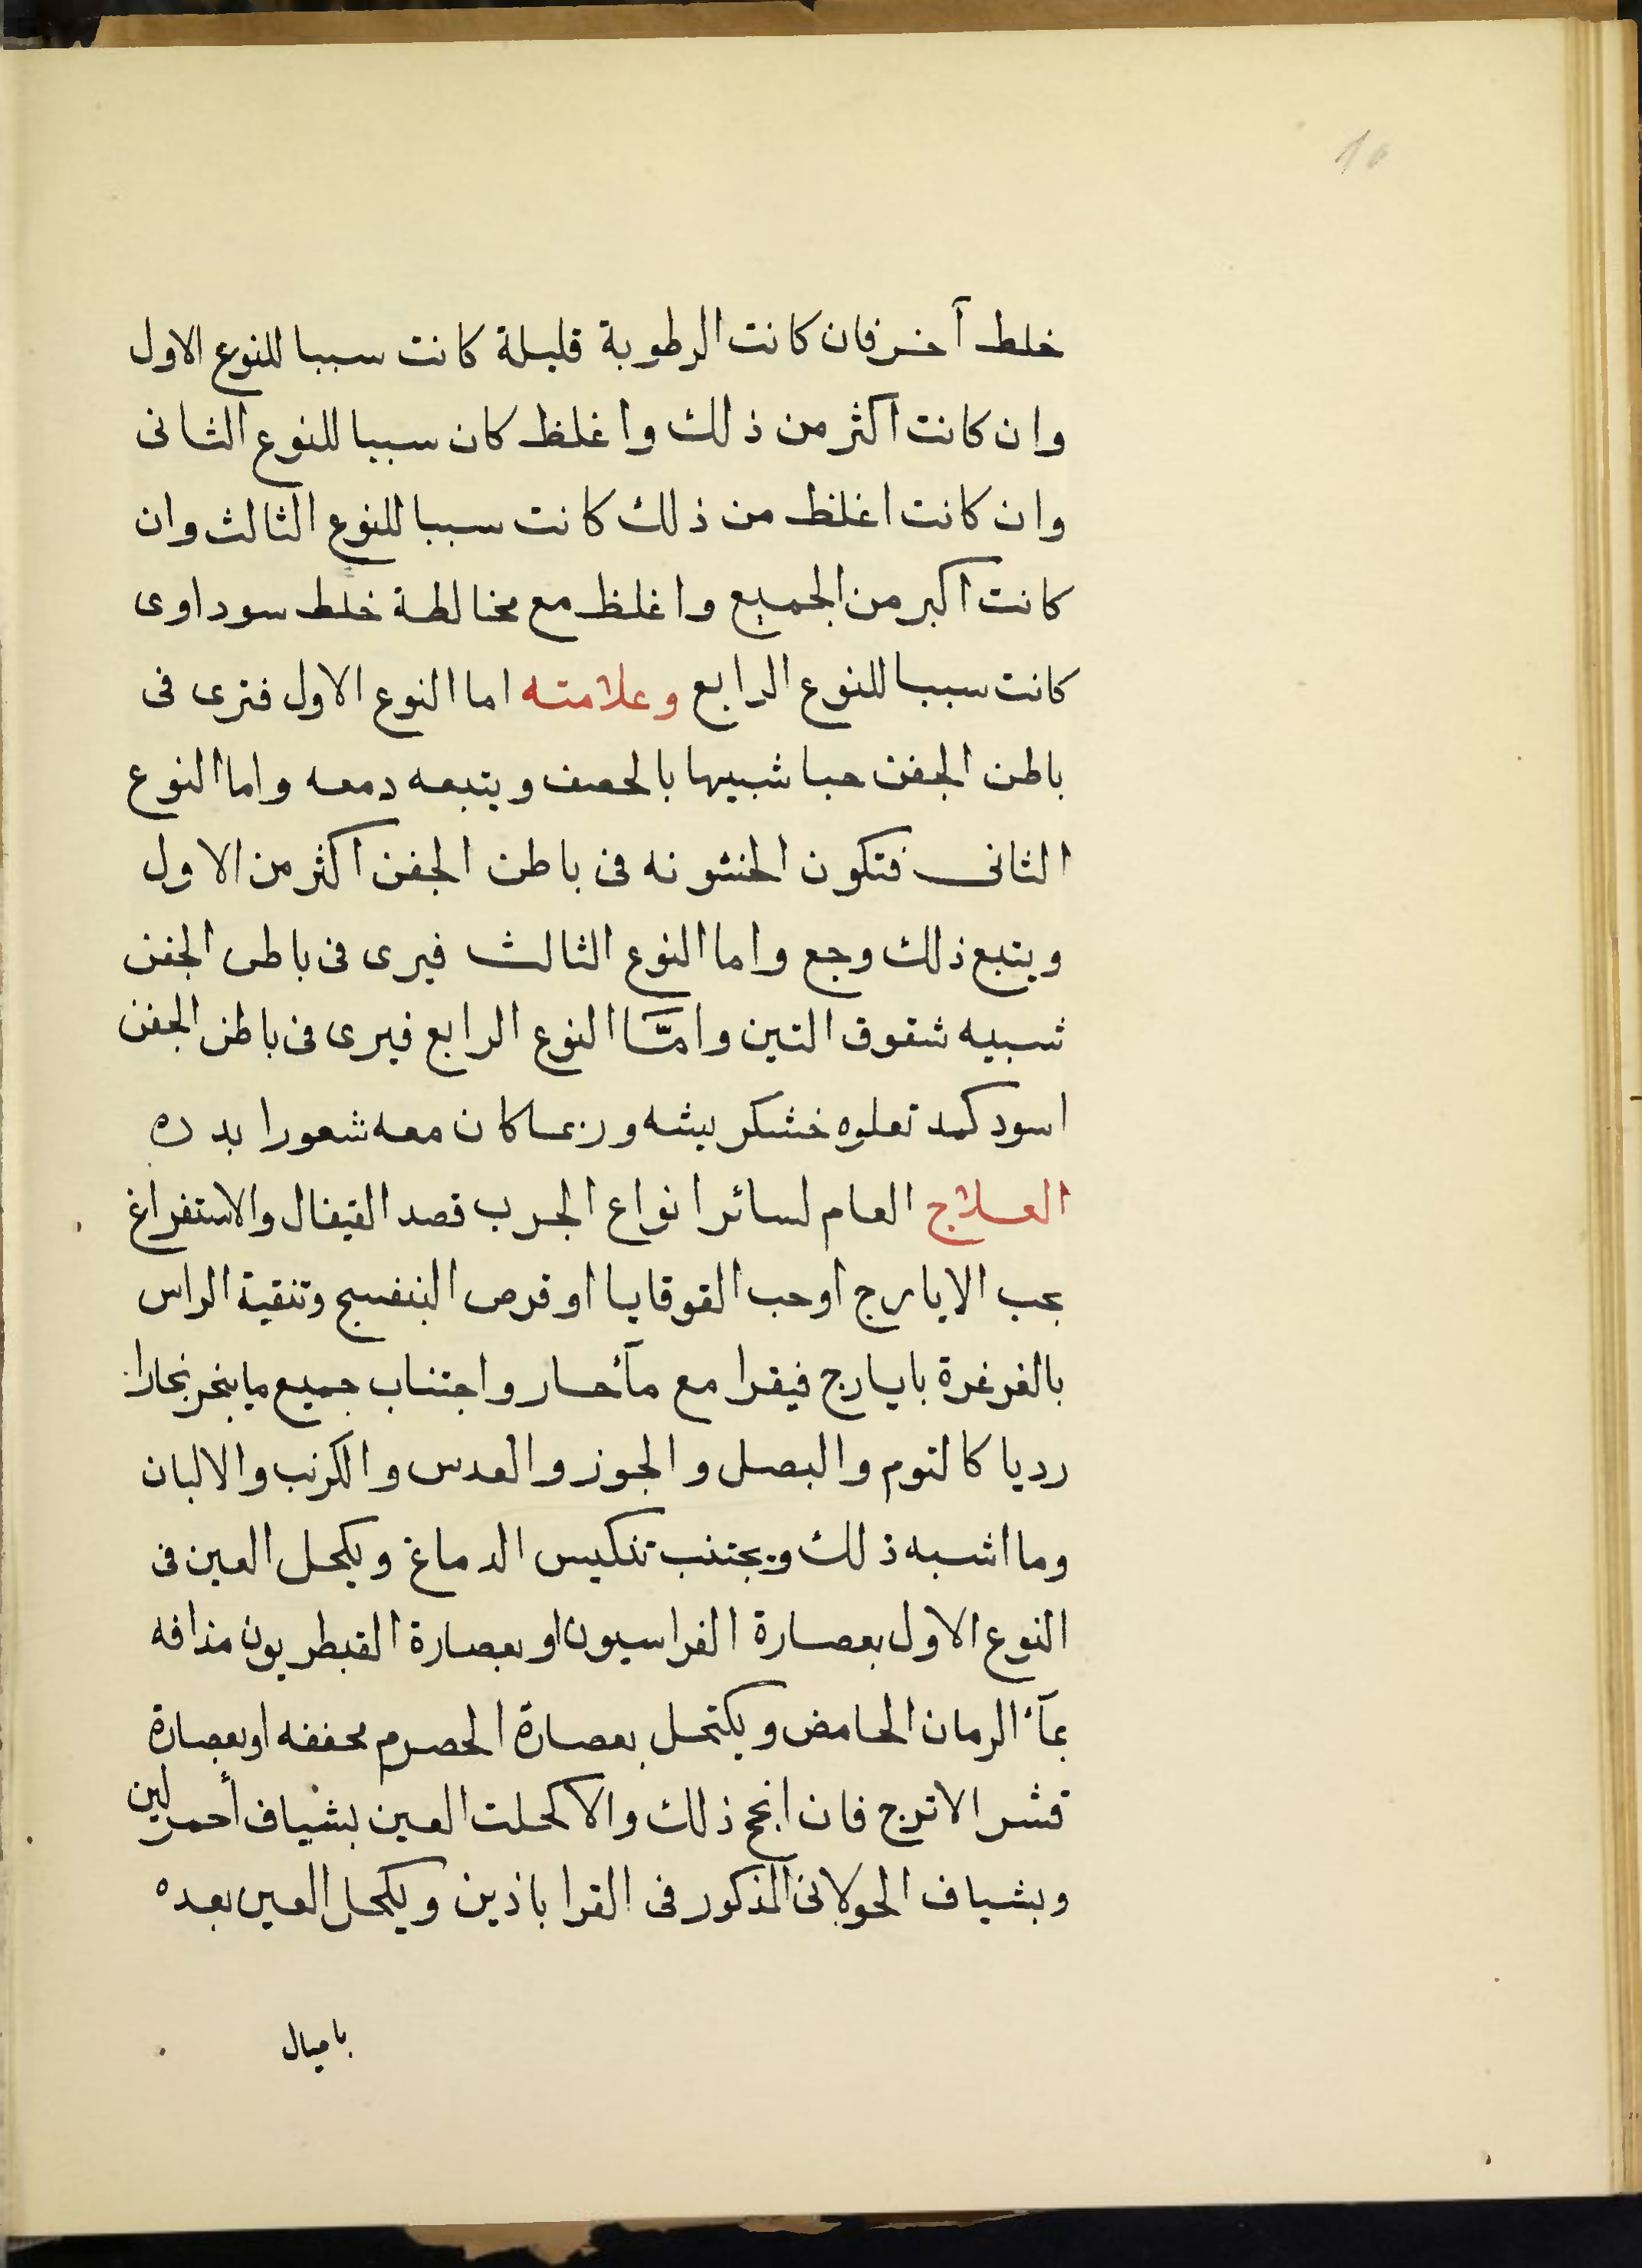 10
خلط آخر فان كانت الرطوبة قليلة كانت سببا للنوع الاول
وان كانت اكثر من ذلك واغلظ كان سببا للنوع الثانى
وان كانت اغلظ من ذلك كانت سببا للنوع الثالث وان
كانت اكبر من الجميع واغلظ مع مخالطة خلط سوداوى
كانت سببا للنوع الرابع وعلامته اما النوع الاول فترى فى
باطن الجفن حبا شبيها بالحصف ويتبعه دمعه واما النوع
الثانى فتكون الخشونه فى باطن الجفن اكثر من الاول
ويتبع ذلك وجع واما النوع الثالث فيرى فى باطن الجفن
شبيه شقوق التين وامّا النوع الرابع فيرى فى باطن الجفن
اسود كمد تعلوه خشكريشه وربما كان معه شعورا بدره
العلاج العام لسائر انواع الجرب قصد القيفال والاستفراغ
بحب الايارج اوحب القوقايا او قرص البنفسج وتنقية الراس
بالغرغرة بايارج فيقرا مع مآء حار واجتناب جميع ما يبخر بخارا
رديا كالثوم والبصل والجوز والعدس والكرنب والالبان
وما اشبه ذلك ويجتنب تنكيس الدماغ ويكحل العين فى
النوع الاول بعصارة الفراسيون او بعصارة القبطريون مذافه
بمآء الرمان الحامض ويكتحل بعصارة الحصرم مجففه او بعصارة
قشر الاترج فان انجح ذلك والا كحلت العين بشياف أحمر لين
وبشياف الحولانى المذكور فى القراباذين ويكحل العين بعده
باميال